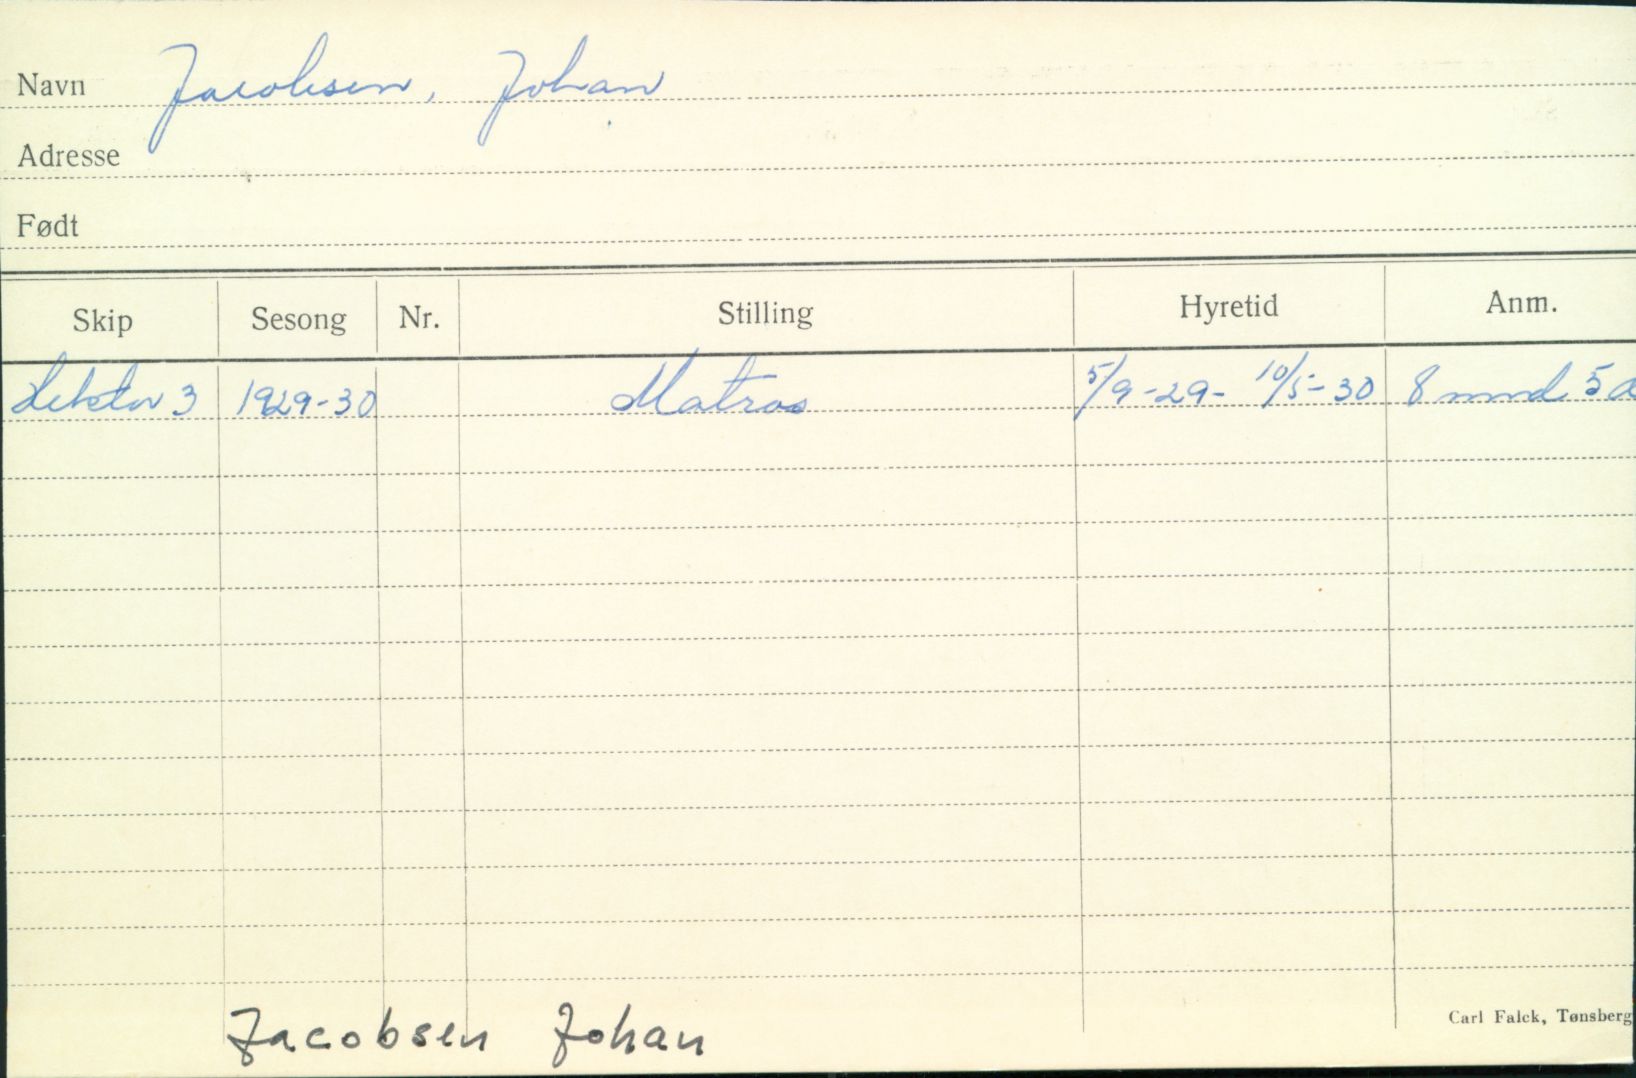 Navn Jacobsen, Johan
Adresse
Født
Skip Sesong Nr. Stilling Hyretid Anm.
Hektor 3 1929-30 Matros 5/9-29- 10/5-30 8 mnd 5 d
Carl Falck, Tønsberg
Jacobsen Johan